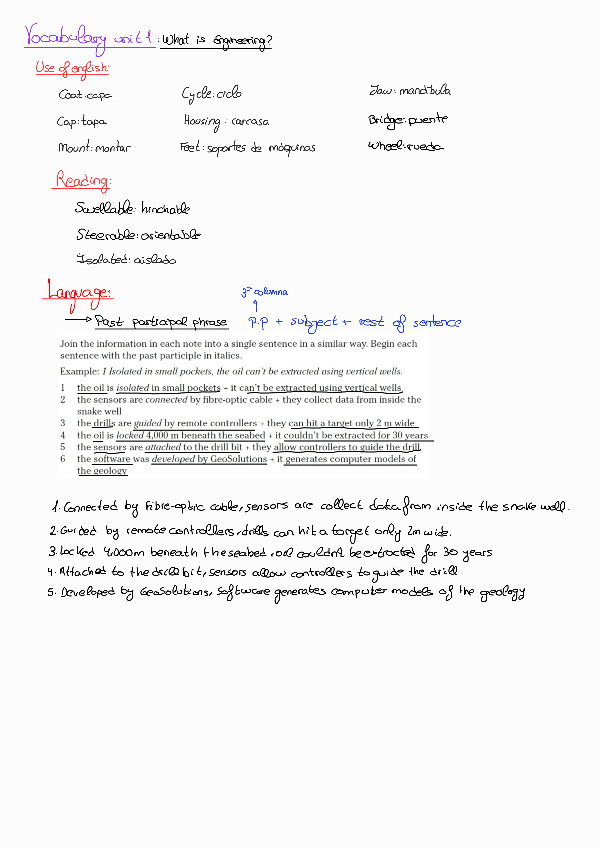 Vocabulary unit 1: What is Engineering?
Use of english:
Coat: capa Cycle: ciclo Jaw: mandíbula
Cap: tapa Housing: carcasa Bridge: puente
Mount: montar Feet: soportes de máquinas Wheel: rueda
Reading:
Swellable: hinchable
Steerable: orientable
Isolated: aislado
Language: 3ª columna
Past participal phrase P.P + subject + rest of sentence
Join the information in each note into a single sentence in a similar way. Begin each
sentence with the past participle in italics.
Example: I Isolated in small pockets, the oil can't be extracted using vertical wells.
1 the oil is isolated in small pockets + it can't be extracted using vertical wells
2 the sensors are connected by fibre-optic cable + they collect data from inside the
snake well
3 the drills are guided by remote controllers + they can hit a target only 2 m wide
4 the oil is locked 4,000 m beneath the seabed + it couldn't be extracted for 30 years
5 the sensors are attached to the drill bit + they allow controllers to guide the drill
6 the software was developed by GeoSolutions + it generates computer models of
the geology
1. Connected by Fibre-optic cable, sensors are collect data from inside the snake well.
2. Guided by remote controllers, drills can hit a target only 2m wide.
3. Locked 4,000m beneath the seabed, oil couldn't be extracted for 30 years
4. Attached to the drill bit, sensors allow controllers to guide the drill
5. Developed by GeoSolutions, Software generates computer models of the geology